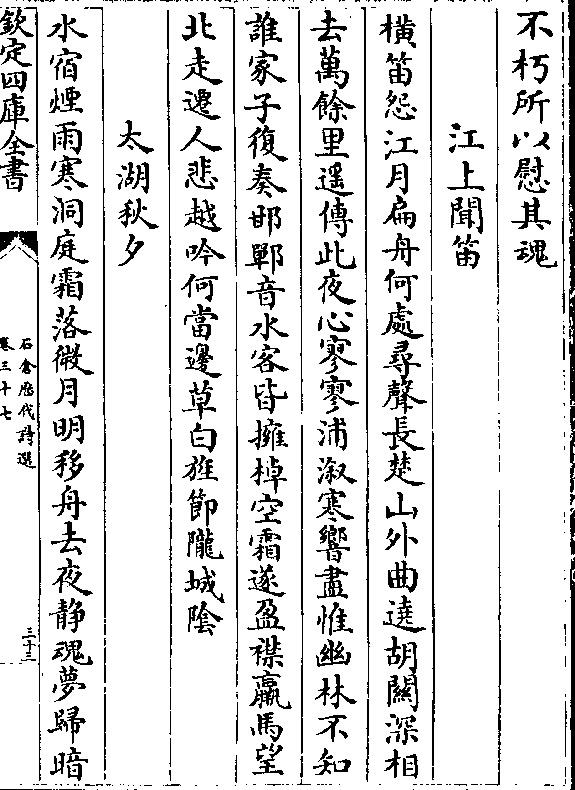 不朽所以慰其魂
江上聞笛
橫笛怨江月扁舟何處尋聲長楚山外曲遶胡關深相
去萬餘里遥傳此夜心寥寥浦溆寒響盡惟幽林不知
誰家子復奏邯鄲音水客皆擁棹空霜遂盈襟羸馬望
北走遷人悲越吟何當邊草白旌節隴城陰
太湖秋夕
水宿煙雨寒洞庭霜落微月明移舟去夜静魂夢歸暗
欽定四庫全書
石倉歴代詩選
卷三十七
三十三